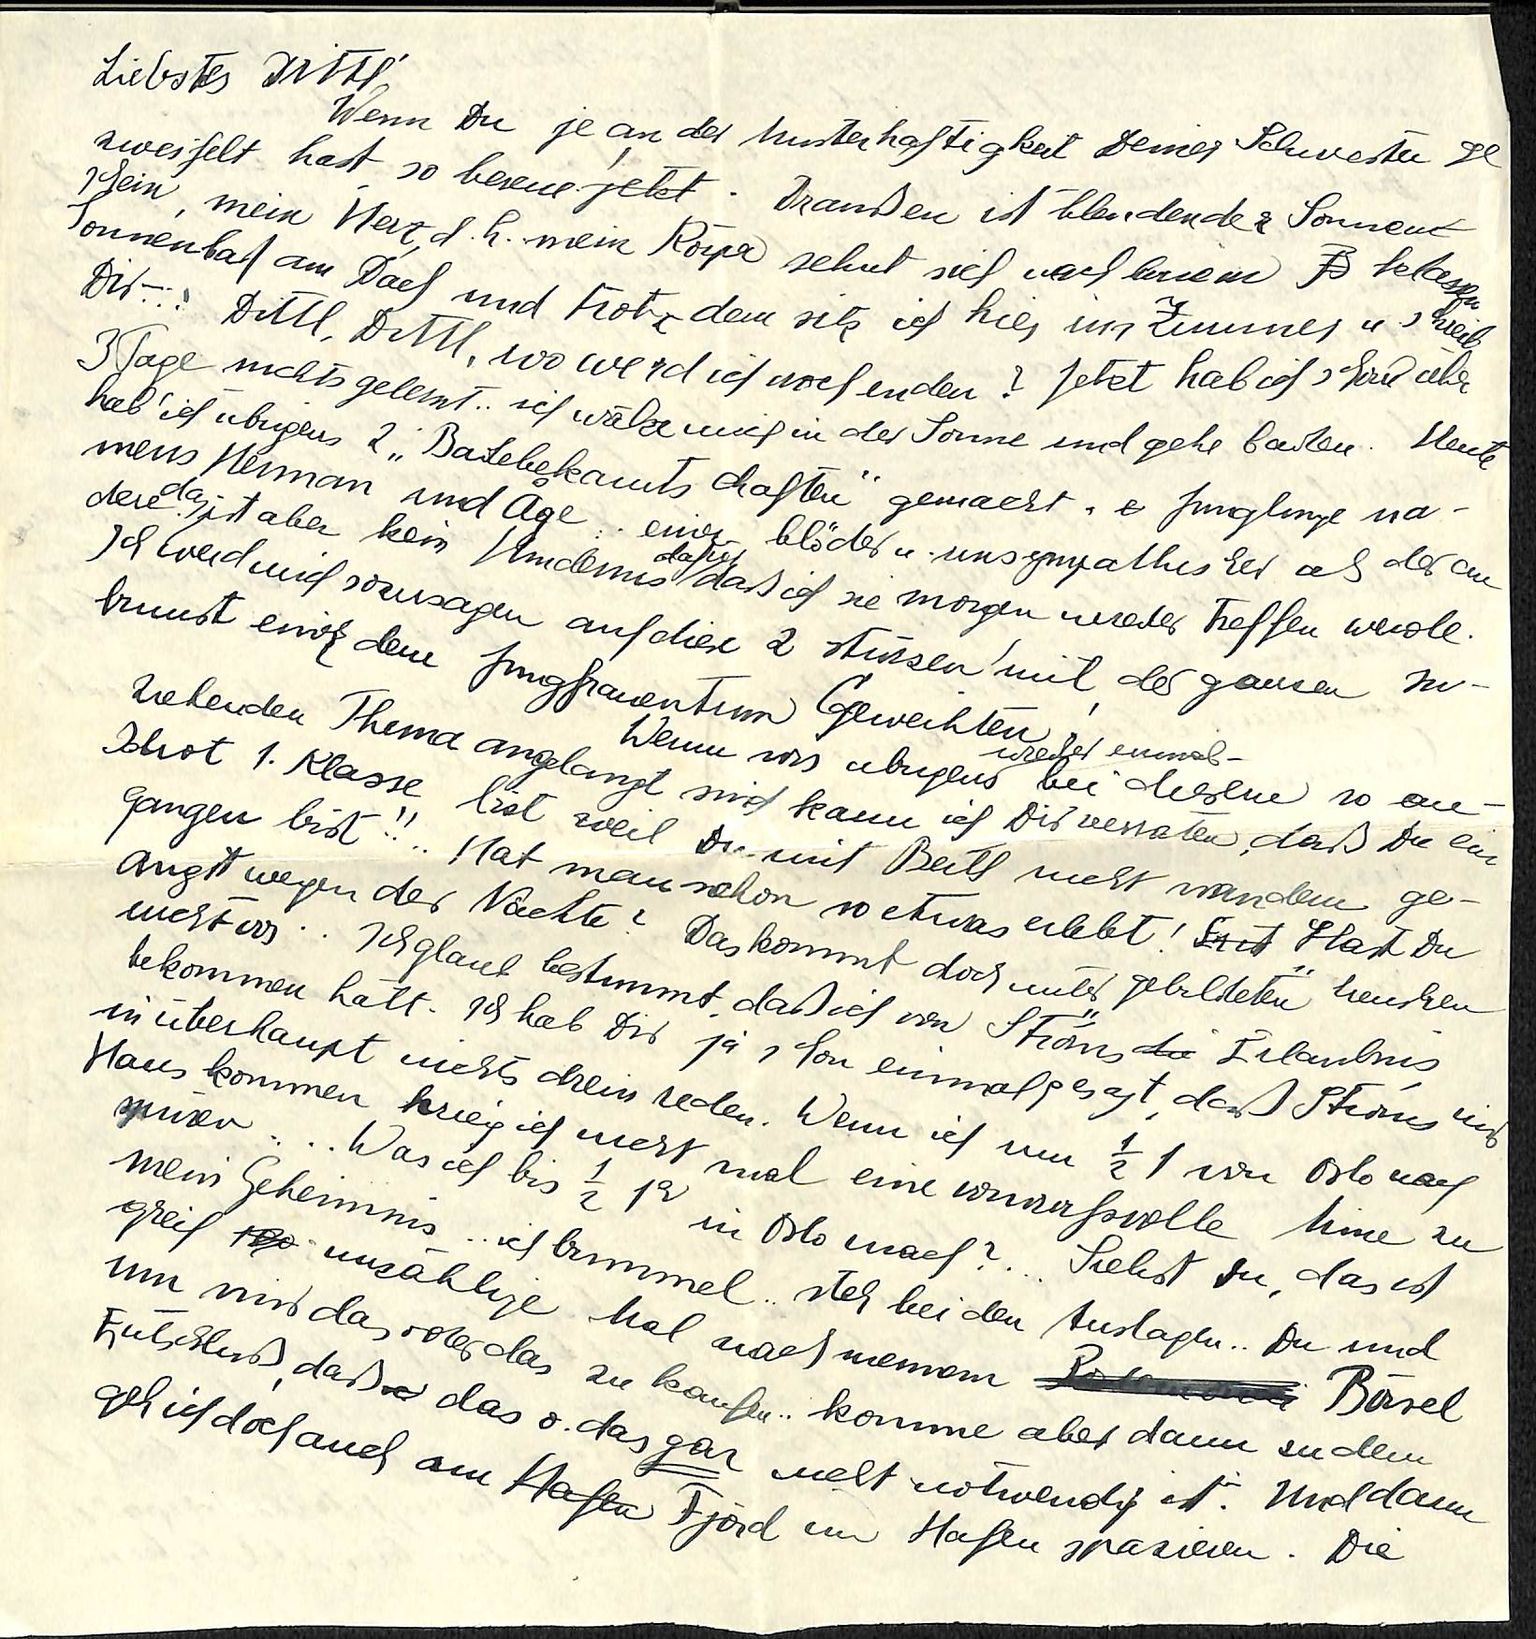 Liebstes Dittl!
Wenn Du je an der Musterhaftigkeit Deiner Schwester ge
zweifelt hast so bereue jetzt. Draußen ist blendender Sonnen
schein, mein Herz, d.h. mein Körper sehnt sich nach einem
Sonnenbad am Dach und trotzdem sitz ich hier im Zimmer u. schreib
Dir...! Dittl, Dittl, wo werd ich noch enden? Jetzt hab ich schon über
3 Tage nichts gelernt.. ich wälze mich in der Sonne und gehe baden. Heute
hab ich übrigens 2 „Badebekanntschaften" gemacht. 2 Jünglinge na-
mens Herman und Åge.. einer blöder u. unsympathischer als der an
dere. das ist aber kein Hindernis dafür daß ich sie morgen wieder treffen werde.
Ich werd mich sozusagen auf diese 2 stürzen mit der ganzen In-
brunst einer dem Jungfrauentum Geweihten!
Wenn wir übrigens wieder einmal bei diesem so an-
ziehenden Thema angelangt sind kann ich Dir verraten, daß Du ein
Idiot 1. Klasse bist weil Du mit Bertl nicht wandern ge-
gangen bist!!.. Hat man schon so etwas erlebt! Hast Du
Angst wegen der Nächte? Das kommt doch unter „gebildeten" Menschen
nicht vor.. Ich glaub bestimmt, daß ich von Ströms die Erlaubnis
bekommen hätt. Ich hab Dir ja schon einmal gesagt, daß Ströms mir
in überhaupt nichts drein reden. Wenn ich um ½ 1 von Oslo nach
Haus kommen krieg ich nicht mal eine vorwurfsvolle Mine zu
spüren... Was ich bis ½ 12 in Oslo mach?... Siehst Du, das ist
mein Geheimnis.. ich bummel.. steh bei den Auslagen.. Du und
greif unzählige Mal nach meinem Börsel
um mir das oder das zu kaufen.. komme aber dann zu dem
Entschluß, daß das o. das gar nicht notwendig ist. Und dann
geh ich doch auch am Hafen Fjord im Hafen spazieren. Die